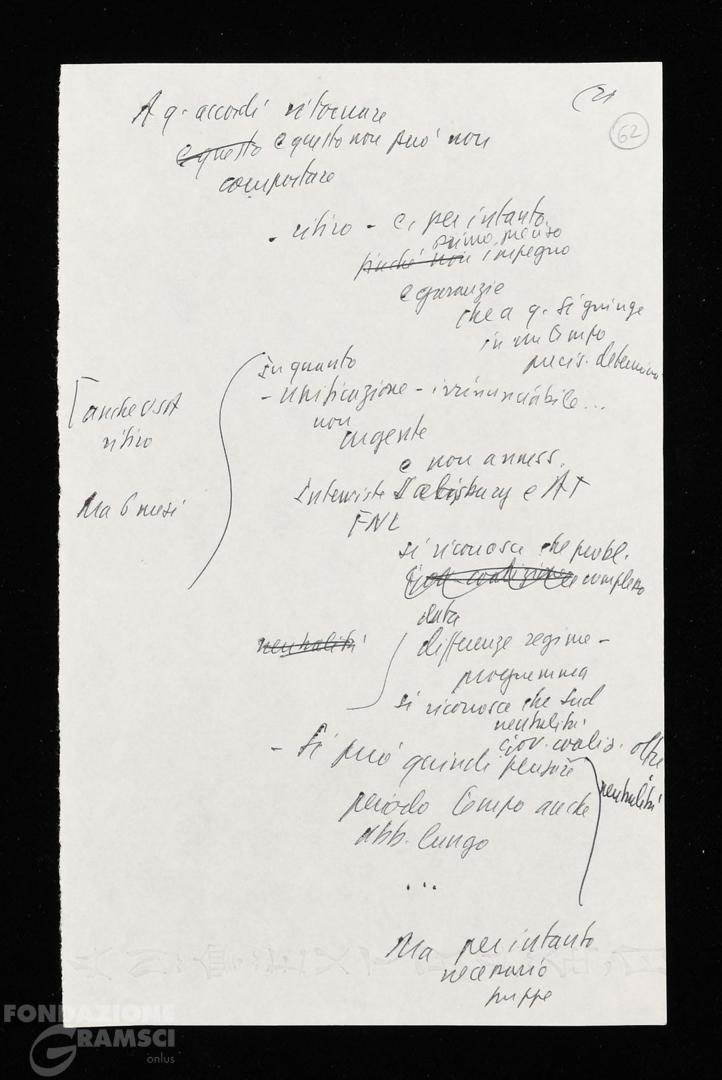 21
62
A q. accordi ritornare
e questo e questo non può non
comportare
- ritiro - e, per intanto,
primo, preciso
finché non impegno
e garanzie
che a q. si giunga
in un tempo
precis. determin
In quanto
- unificazione - irrinunciabile...
non
urgente
e non anness.
[anche USA
ritiro
Ma 6 mesi
Interviste Salisbury e AT
FNL
si riconosce che probl.
complesso
data
neutralità
differenze regime -
programma
si riconosce che Sud
neutralità
gov. coaliz. oltre
neutralità
- Si può quindi pensare
periodo tempo anche
abb. lungo
...
Ma per intanto
necessario
truppe
FONDAZIONE
GRAMSCI
onlus